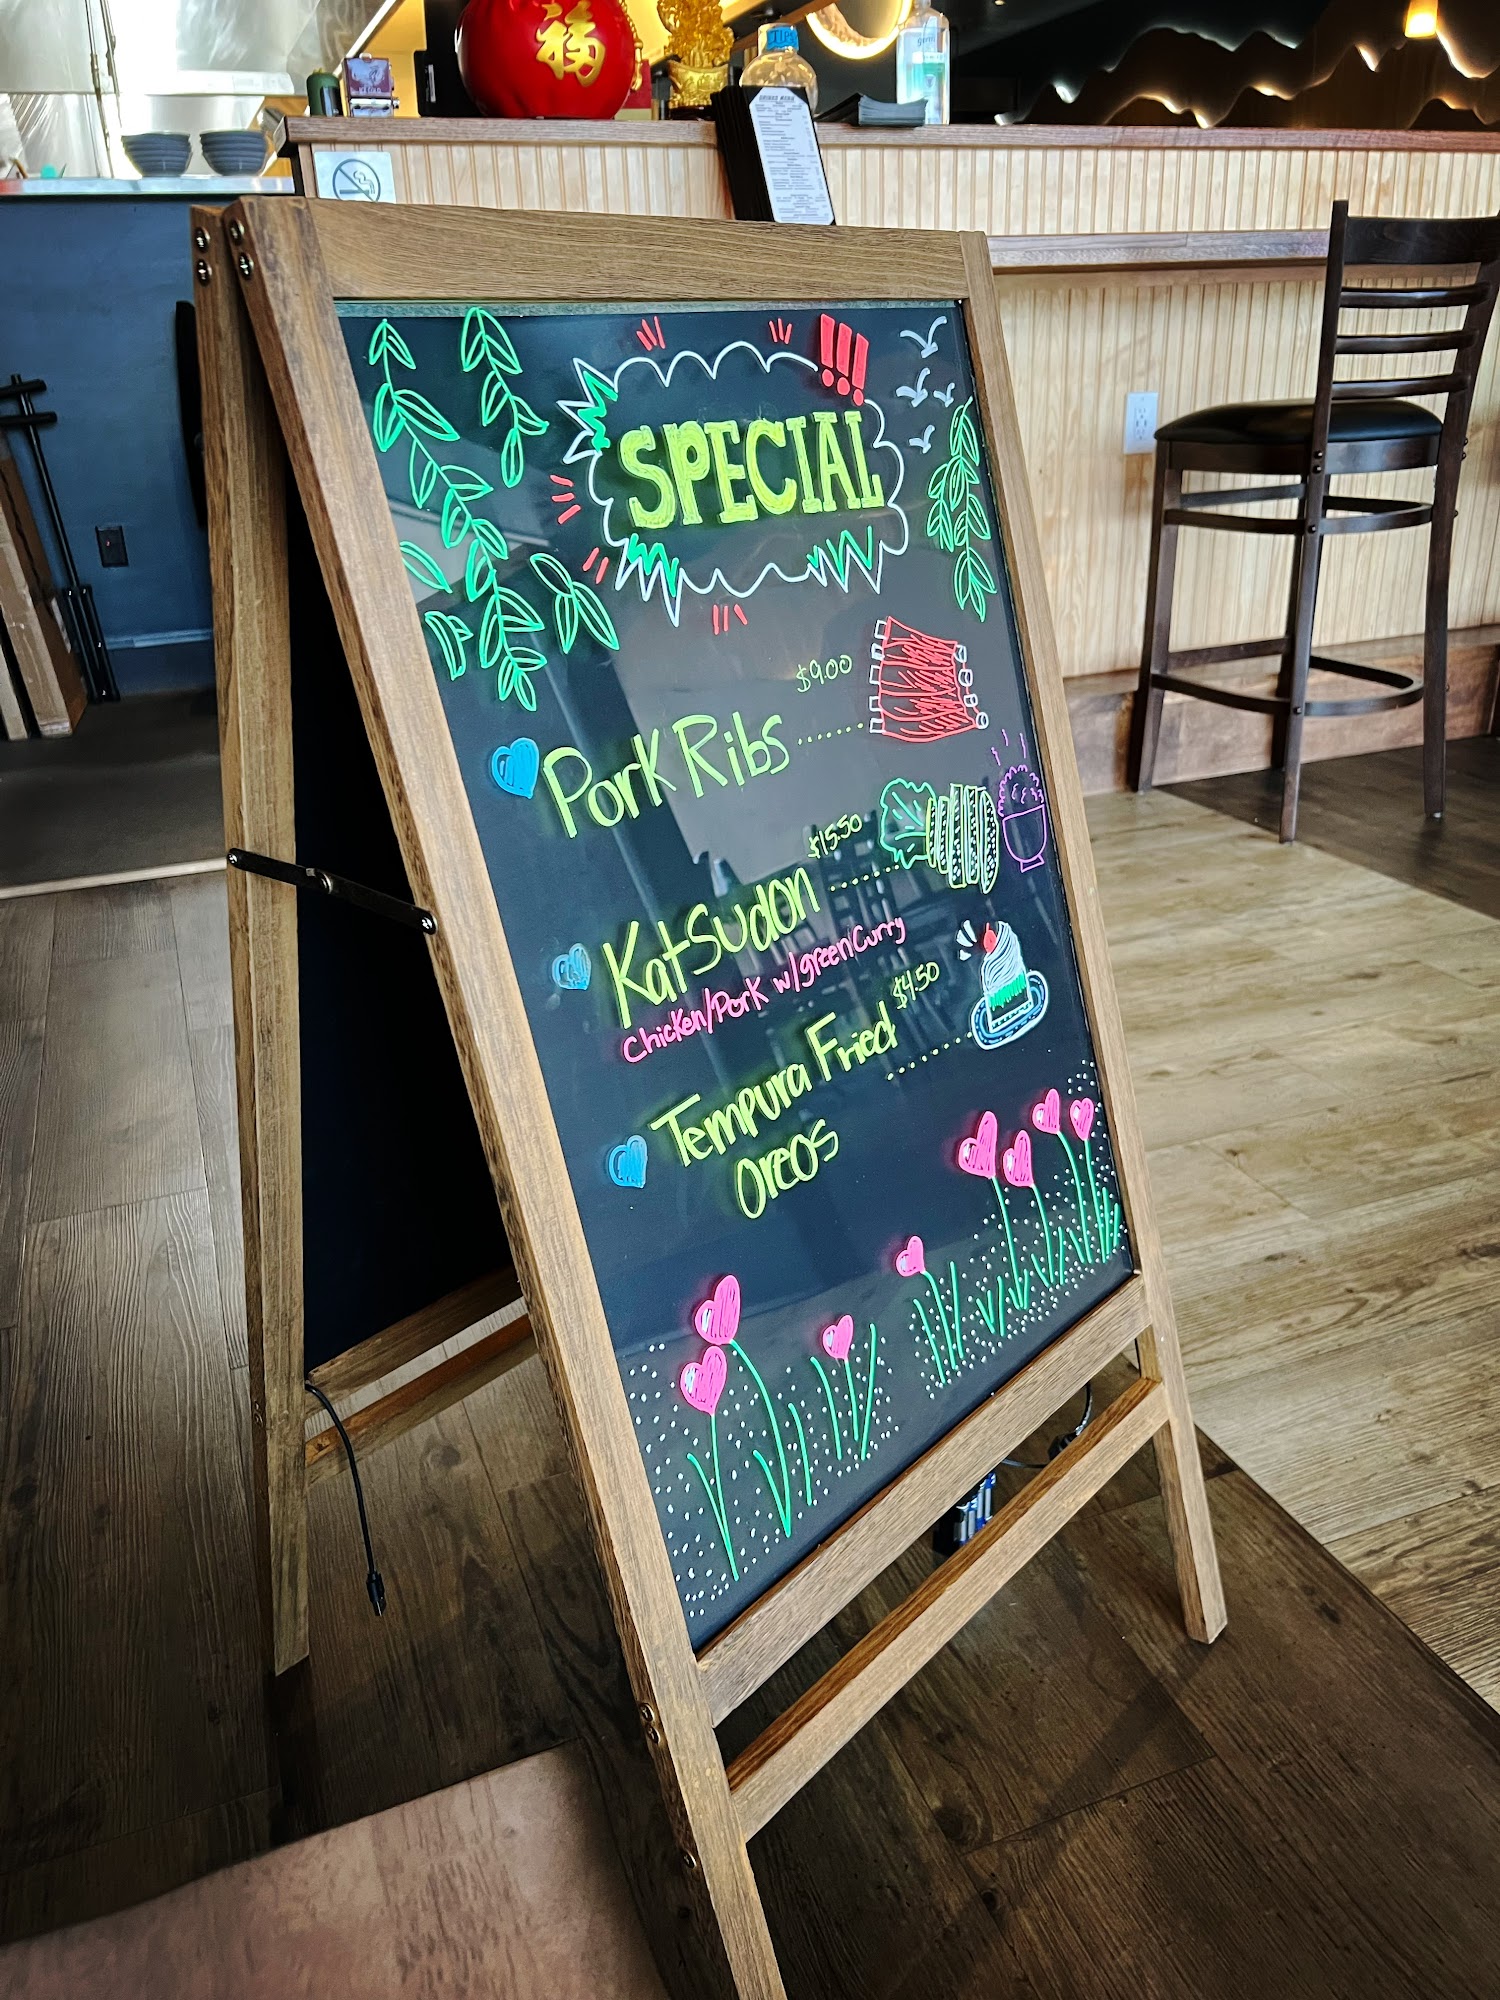 福
TIPS
DRINKS MENU
SPECIAL!!!
$9.00
Pork Ribs ......
$15.50
Katsudon .......
Chicken/Pork w/green Curry
$4.50
Tempura Fried ........
Oreos